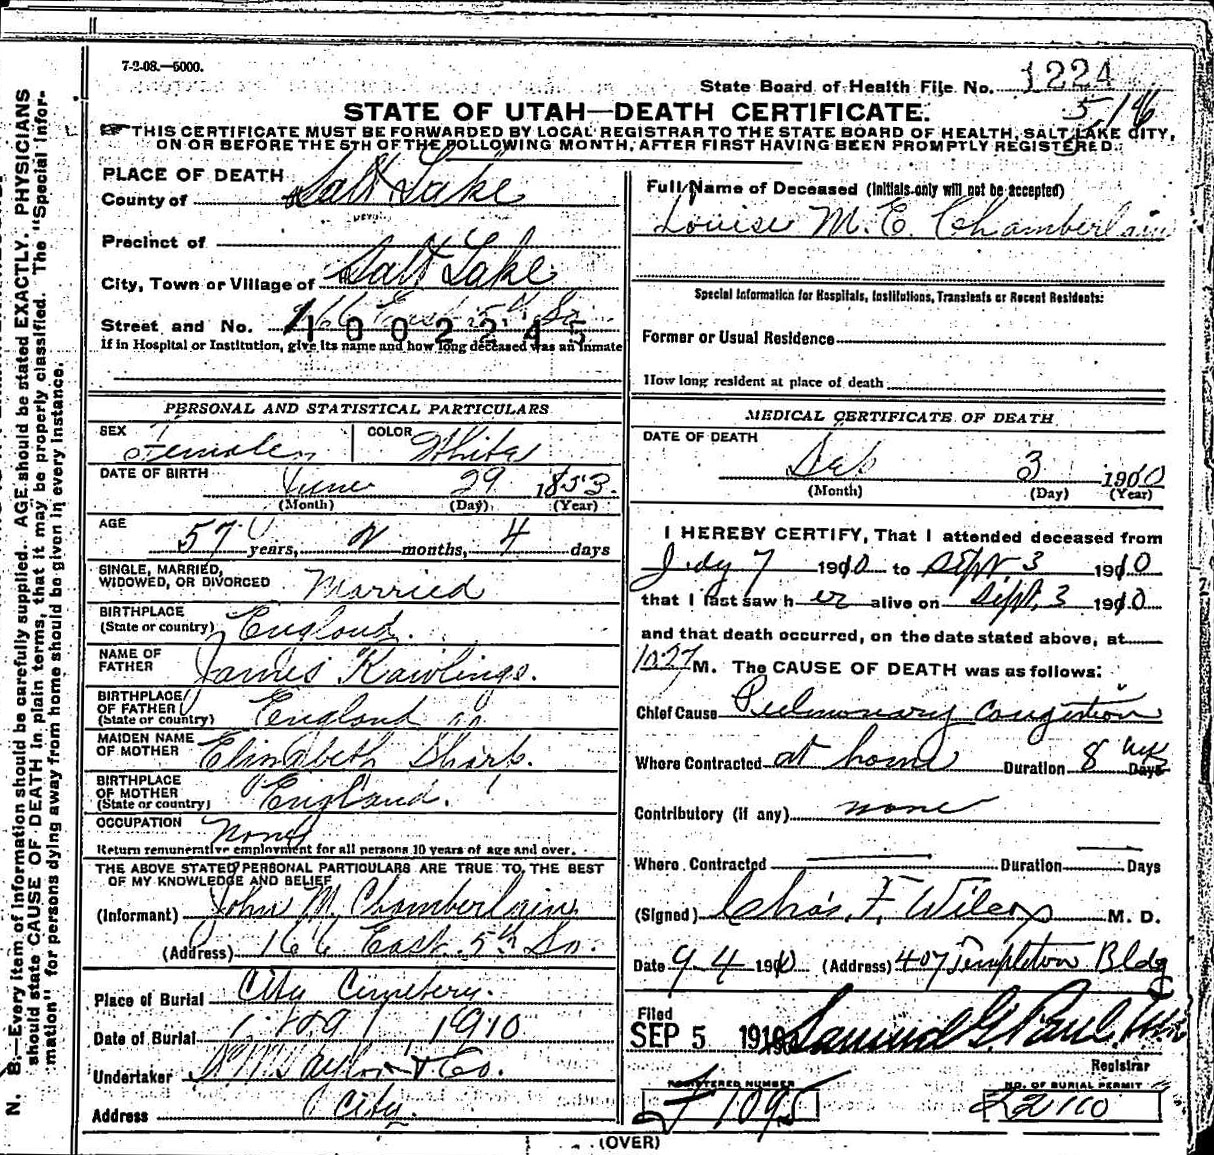 7-2-08.—5000.
State Board of Health File No. 1224
STATE OF UTAH—DEATH CERTIFICATE.
5/16
THIS CERTIFICATE MUST BE FORWARDED BY LOCAL REGISTRAR TO THE STATE BOARD OF HEALTH, SALT LAKE CITY,
ON OR BEFORE THE 5TH OF THE FOLLOWING MONTH, AFTER FIRST HAVING BEEN PROMPTLY REGISTERED.
PLACE OF DEATH
County of Salt Lake
Precinct of
City, Town or Village of Salt Lake
Street and No. 166 East 5th So
1002245
If in Hospital or Institution, give its name and how long deceased was an inmate
PERSONAL AND STATISTICAL PARTICULARS
SEX Female COLOR White
DATE OF BIRTH June 29 1853.
(Month) (Day) (Year)
AGE 57 years, 2 months, 4 days
SINGLE, MARRIED,
WIDOWED, OR DIVORCED Married
BIRTHPLACE
(State or country) England.
NAME OF
FATHER James Rawlings.
BIRTHPLACE
OF FATHER
(State or country) England
MAIDEN NAME
OF MOTHER Elizabeth Sharp.
BIRTHPLACE
OF MOTHER
(State or country) England.
OCCUPATION None
Return remunerative employment for all persons 10 years of age and over.
THE ABOVE STATED PERSONAL PARTICULARS ARE TRUE TO THE BEST
OF MY KNOWLEDGE AND BELIEF
(Informant) John M. Chamberlain
(Address) 166 East 5th So.
Place of Burial City Cemetery.
Date of Burial 1910
Undertaker S. M. Taylor & Co.
Address City.
Full Name of Deceased (Initials only will not be accepted)
Louise M. E. Chamberlain
Special Information for Hospitals, Institutions, Transients or Recent Residents:
Former or Usual Residence
How long resident at place of death
MEDICAL CERTIFICATE OF DEATH
DATE OF DEATH
Sep 3 1910
(Month) (Day) (Year)
I HEREBY CERTIFY, That I attended deceased from
July 7 1910 to Sept 3 1910
that I last saw her alive on Sept. 3 1910
and that death occurred, on the date stated above, at
10:27 M. The CAUSE OF DEATH was as follows:
Chief Cause Pulmonary Congestion
Where Contracted at home Duration 8 wks Days
Contributory (if any) none
Where Contracted Duration Days
(Signed) Chas. F. Wilcox M. D.
Date 9-4 1910 (Address) 407 Templeton Bldg
Filed
SEP 5 1910 Samuel G. Paul
Registrar
REGISTERED NUMBER
7 1095
NO. OF BURIAL PERMIT
(OVER)
N. B.—Every item of information should be carefully supplied. AGE should be stated EXACTLY. PHYSICIANS
should state CAUSE OF DEATH in plain terms, that it may be properly classified. The "Special Infor-
mation" for persons dying away from home should be given in every instance.